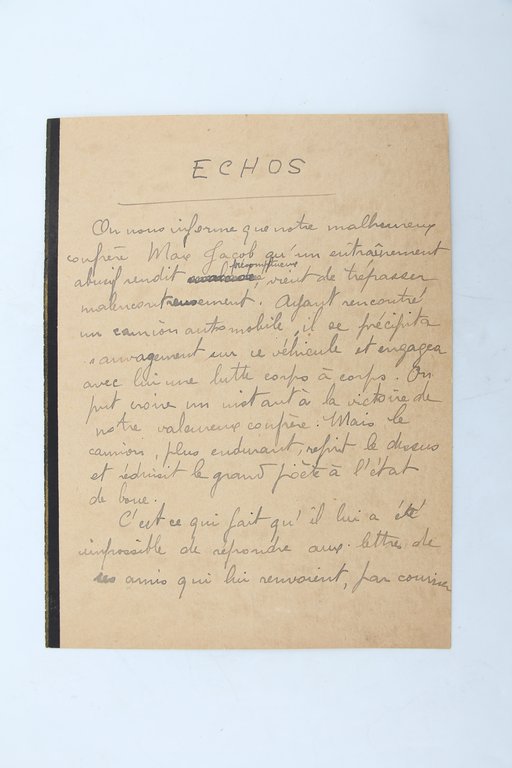 ECHOS
On nous informe que notre malheureux
confrère Max Jacob qu'un entraînement
abusif rendit présomptueux, vient de trépasser
malencontreusement. Ayant rencontré
un camion automobile, il se précipita
sauvagement sur ce véhicule et engagea
avec lui une lutte corps à corps. On
put croire un instant à la victoire de
notre valeureux confrère. Mais le
camion, plus endurant, reprit le dessus
et réduisit le grand poète à l'état
de boue.
C'est ce qui fait qu'il lui a été
impossible de répondre aux lettres de
ses amis qui lui renvoient, par courrier